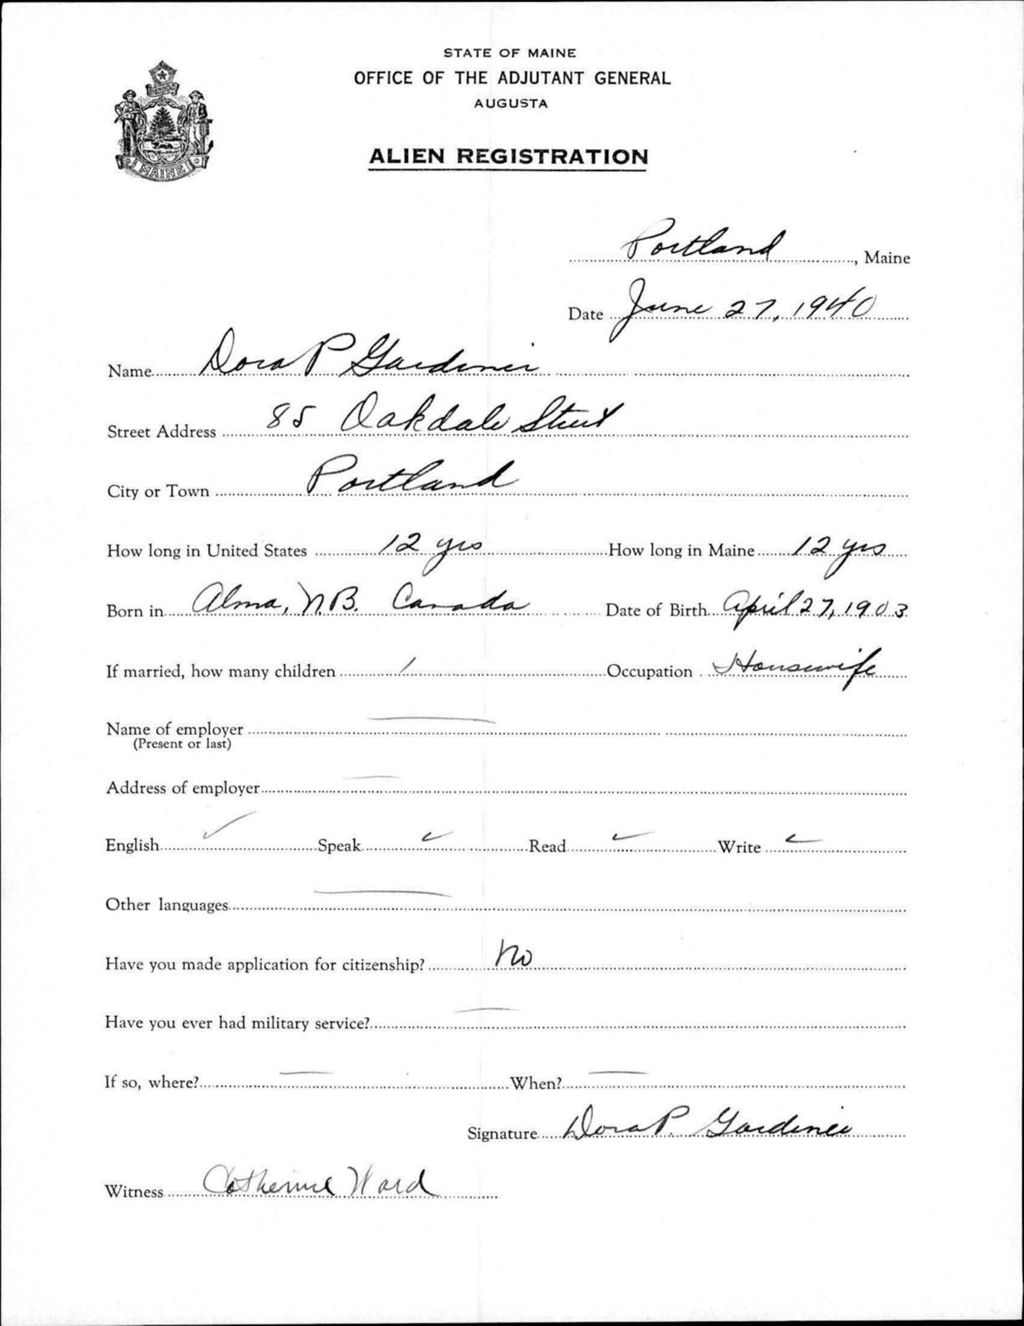 STATE OF MAINE
OFFICE OF THE ADJUTANT GENERAL
AUGUSTA
ALIEN REGISTRATION
MAINE
Portland, Maine
Date June 27, 1940
Name Dora P Gardiner
Street Address 85 Oakdale Street
City or Town Portland
How long in United States 12 yrs How long in Maine 12 yrs
Born in Alma, N.B. Canada Date of Birth April 27, 1903
If married, how many children 1 Occupation Housewife
Name of employer
(Present or last)
Address of employer
English ✓ Speak ✓ Read ✓ Write ✓
Other languages
Have you made application for citizenship? No
Have you ever had military service?
If so, where? When?
Signature Dora P. Gardiner
Witness Catherine Ward